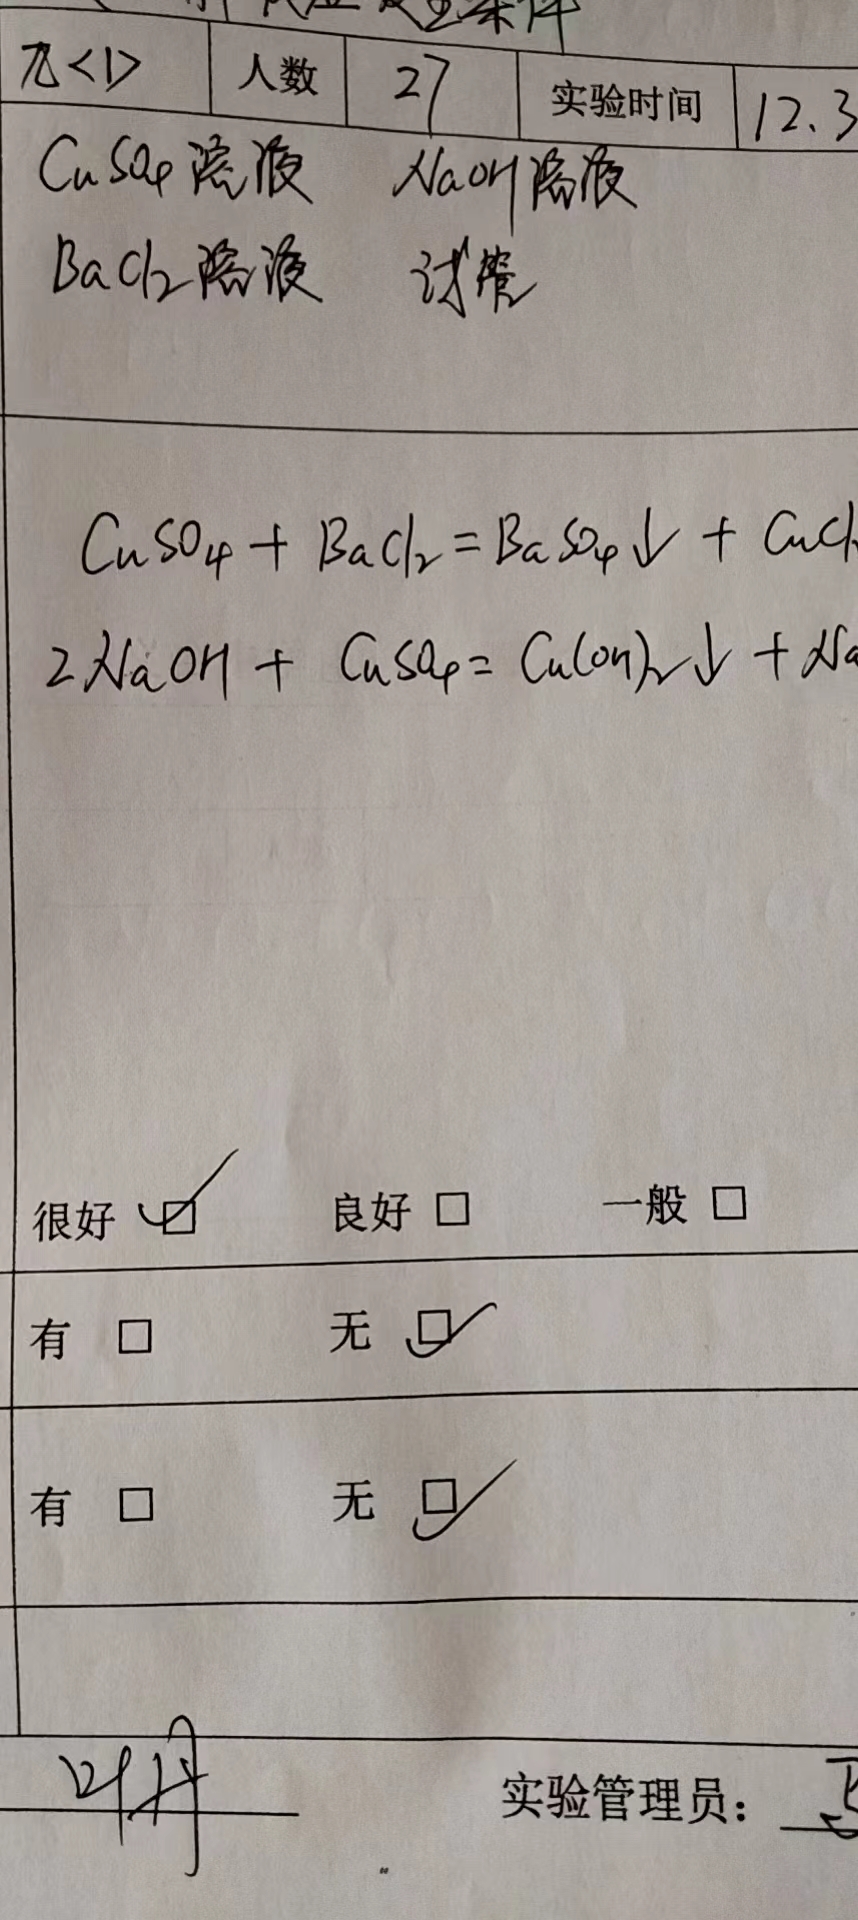 反应发生条件
九<1> 人数 27 实验时间 12.3
CuSO4溶液 NaOH溶液
BaCl2溶液 试管
CuSO4 + BaCl2 = BaSO4↓ + CuCl
2NaOH + CuSO4 = Cu(OH)2↓ + Na
很好 ☑ 良好 □ 一般 □
有 □ 无 ☑
有 □ 无 ☑
叶丹 实验管理员：